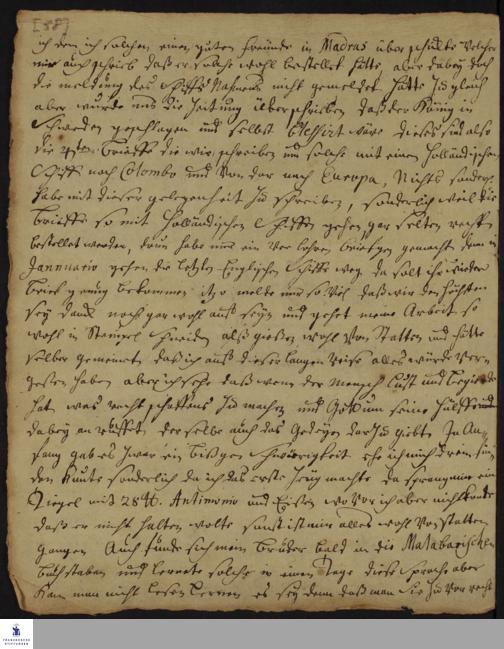 [58]
ich dem ich solchen einen guten freunde in Madras über schickte welcher
mir auch schrieb daß er solche wohl bestellet hätte, aber dabey doch
die meldung des schiffs Nahmens nicht gemeldet hatte zu gleich
aber wurde uns die Zeitung überschrieben daß der König in
Schweden geschlagen und selbst blessirt wäre dieses sind also
die brieffe die wir schreiben und solche mit einen Holländischen
Schiff nach Colombo und von dar nach Europa, Nichts
habe mit dieser gelegenheit zu schreiben, sonderlich weil die
brieffe so mit Holländischen Schiffen gehen gar selten recht
bestellet werden, drum habe nur ein verlohren briefgen gemacht denn in
Jannuario gehen die letzten Englischen Schiffe weg da solt ihr wieder
brief genug bekommen melde nur so viel daß wir den Höchsten
sey danck noch gar wohl auf seyn und gehet meine Arbeit so
wohl in Stempel schneiden alß gießen wohl von statten und hätte
selber gemeinet daß ich auf dieser langen reise alles würde ver-
geßen haben aber ich sehe daß wenn der Mensch Lust und begierde
hat was recht schaffens zu machen und Gott um seine Hülffe
dabey an ruffet derselbe auch das gedeyen darzu giebt. In An-
fang gab es zwar ein bißgen schwierigkeit ehe ich mich drein fun-
den konte sonderlich da ich das erste Zeug machte da sprang mir ein
Tiegel mit 28 ℔. Antimonio und Eisen wovor ich aber nicht konte
daß er nicht halten wolte sonst ist mir alles wohl von statten
gangen Auch funde sich mein bruder bald in die Malabarischen
buchstaben und lernete solche in einen Tage diese Sprache aber
kan man nicht lesen lernen es sey denn daß man sie zuvor recht